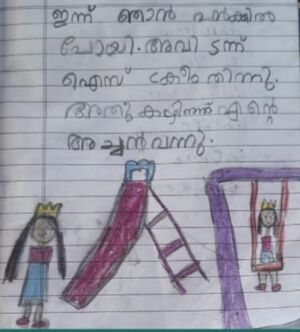 ഇന്ന് ഞാൻ പാർക്കിൽ
പോയി. അവിടന്ന്
ഐസ് ക്രീം തിന്നു.
അതു കയിഞ്ഞ് എന്റെ
അച്ചൻ വന്നു.